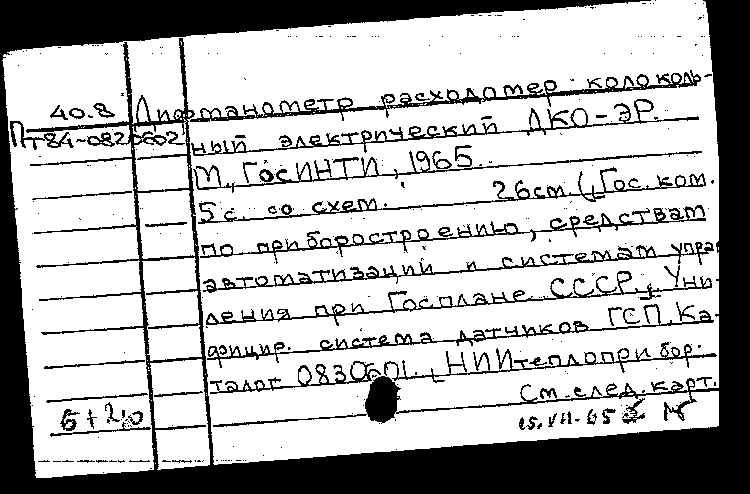 40.8 Дифманометр расходомер колоколь-
Пт84-0820602 ный электрический ДКО-ЭР.
М., ГосИНТИ, 1965.
5 с. со схем. 26 см. (Гос. ком.
по приборостроению, средствам
автоматизаций и системам управ
ления при Госплане СССР. Уни-
фицир. система датчиков ГСП. Ка-
талог 0830601. НИИтеплоприбор.
См. след. карт.
15.VII-65